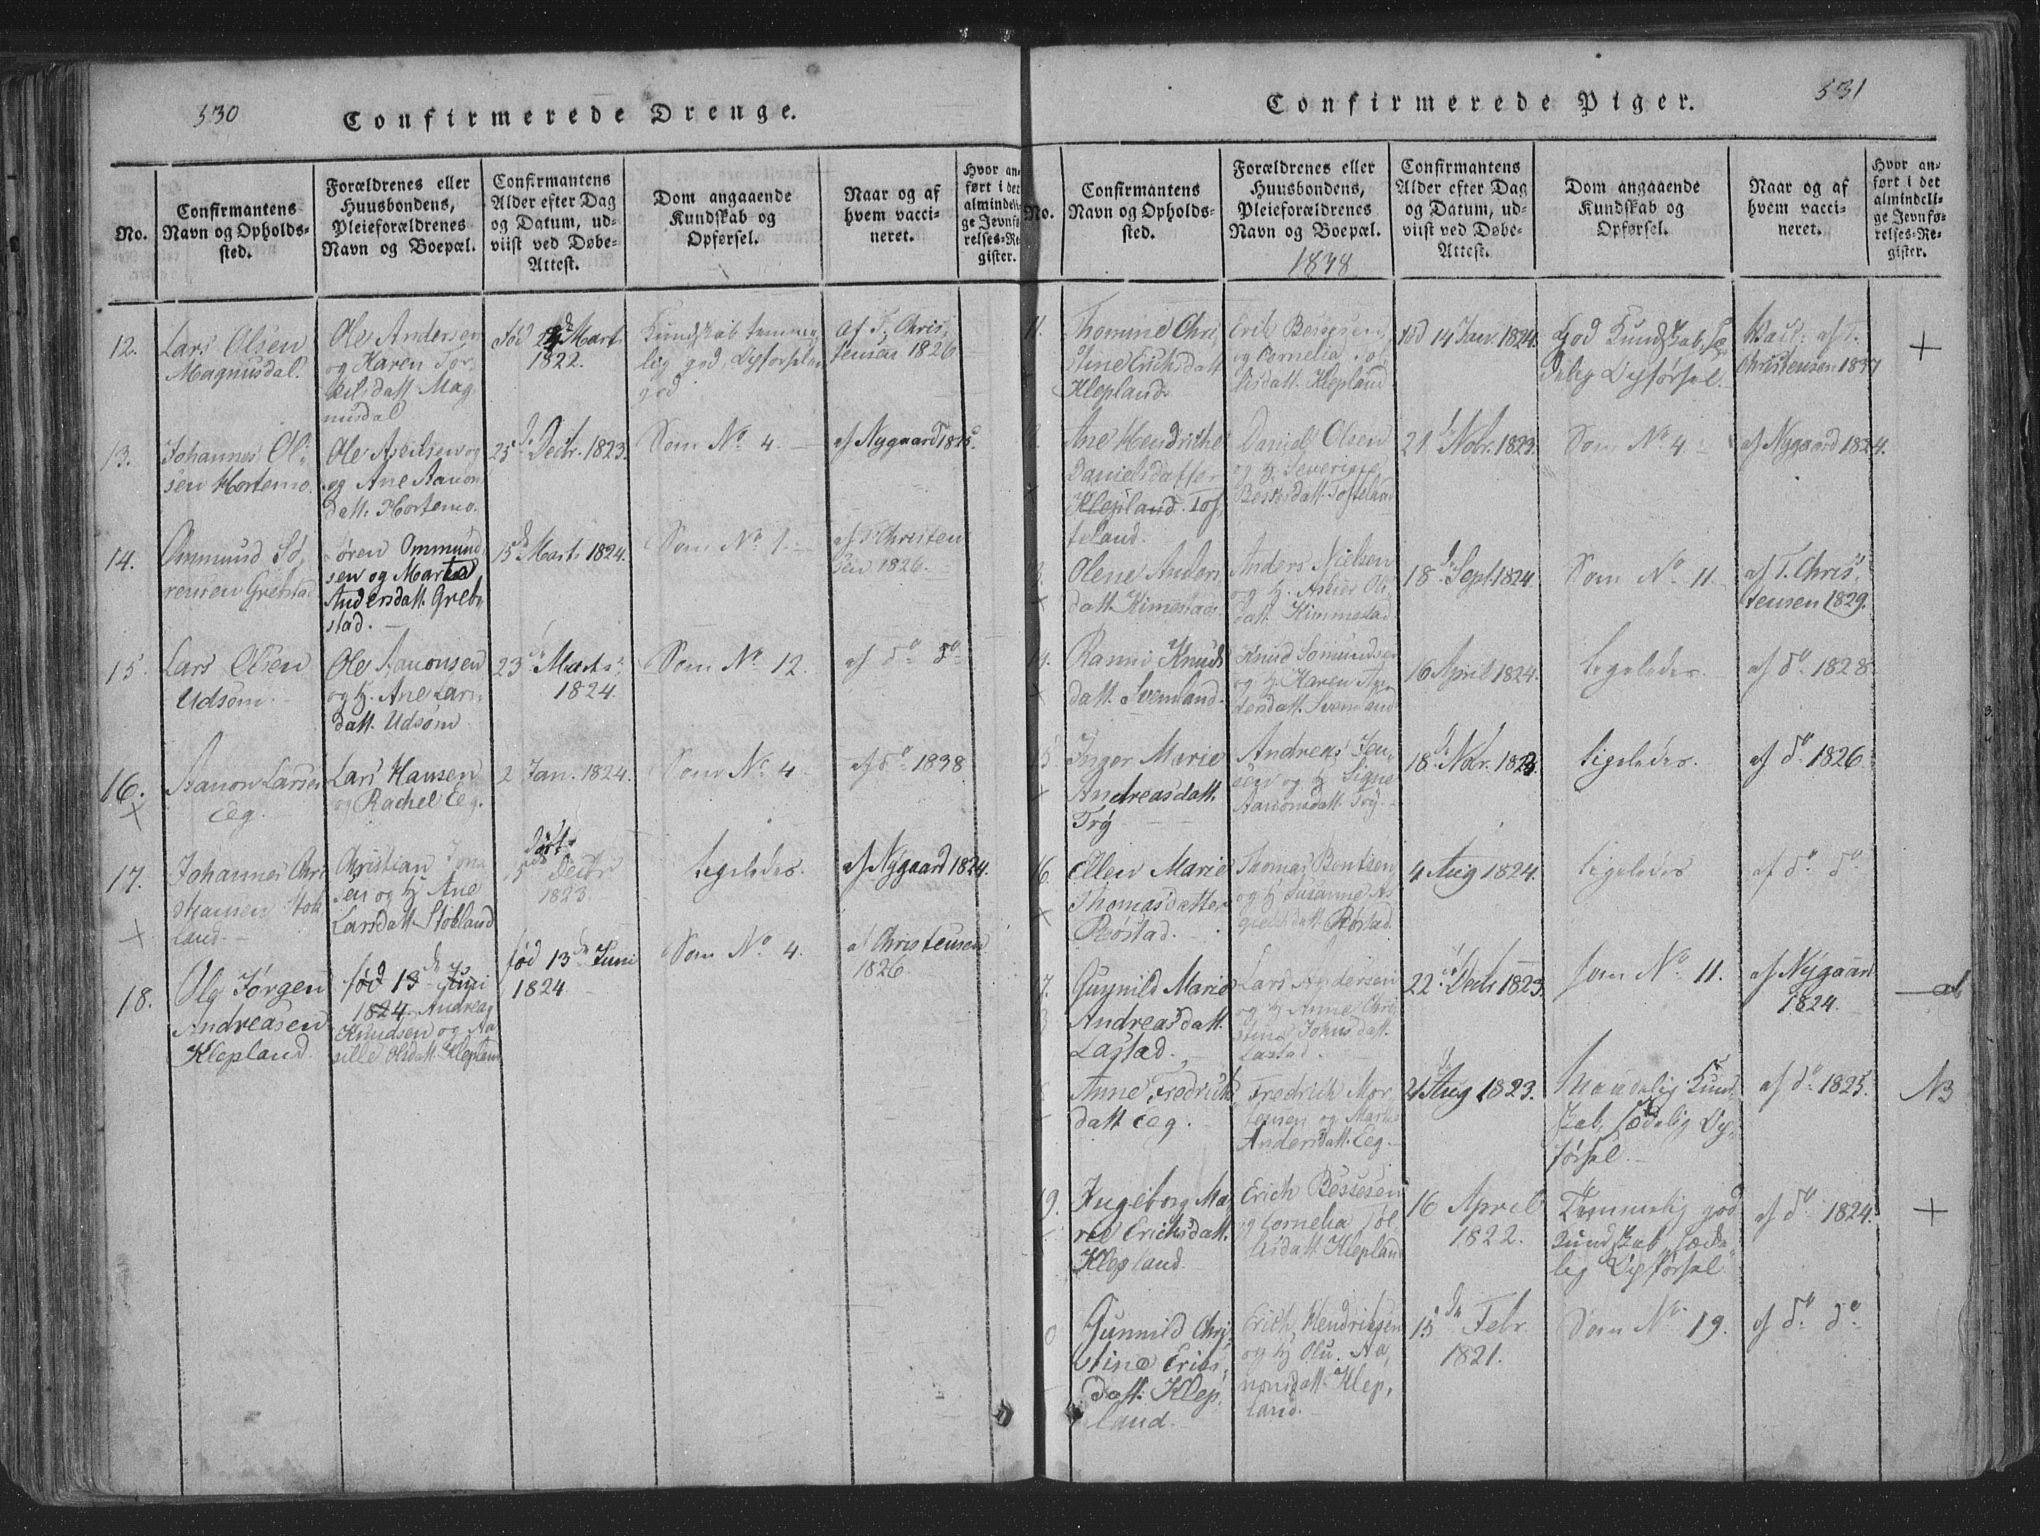 530
Confirmerede Drenge.
No.
Confirmantens
Navn og Opholds-
sted.
Forældrenes eller
Huusbondens,
Pleieforældrenes
Navn og Boepæl.
Confirmantens
Alder efter Dag
og Datum, ud-
viist ved Døbe-
Attest.
Dom angaaende
Kundskab og
Opførsel.
Naar og af
hvem vacci-
neret.
Hvor an-
ført i det
almindeli-
ge Jevnfø-
relses-Re-
gister.
12.
Lars Olsen
Magnusdal.
Ole Andersen
og Karen Tor-
kilsdatt. Mag-
nusdal
Fød 24de Marts
1822.
Kundskab temme-
lig god, Opførsel
god
af T. Chris-
tensen 1826
13.
Johannes Ol-
sen Hortemo.
Ole
og Ane Aanon
datt. Hortemo.
25de Decbr. 1823.
Som No. 4.
af Nygaard 1825.
14.
Ommund Sø-
rensen Grebstad
Søren Ommund
sen og Marta
Andersdatt. Greb-
stad.
15de Marts 1824.
Som No. 1.
af T. Christen
sen 1826.
15.
Lars Olsen
Udsøm.
Ole Aanonsen
og H. Ane Lars-
datt. Udsøm.
23de Marts
1824.
Som No. 12.
af do do
16.
Aanon Larsen
Eeg.
Lars Hansen
og Rachel Eeg.
2 Jan. 1824.
Som No. 4.
af do 1838
17.
Johannes Chri
stiansen Stok
land.
Christian
sen og H. Ane
Larsdatt. Stokland
5te Decbr
1823.
Ligeledes.
af Nygaard 1824.
18.
Ole Jørgen
Andreasen
Klepland.
fød 13de Juni
1824. Andreas
Knudsen og Aa
sille Olsdatt. Klepland
fød 13de Juni
1824
Som No. 4.
af Christensen
1826.
531
Confirmerede Piger.
No.
Confirmantens
Navn og Opholds-
sted.
Forældrenes eller
Huusbondens,
Pleieforældrenes
Navn og Boepæl.
1838
Confirmantens
Alder efter Dag
og Datum, ud-
viist ved Døbe-
Attest.
Dom angaaende
Kundskab og
Opførsel.
Naar og af
hvem vacci-
neret.
Hvor an-
ført i det
almindeli-
ge Jevnfø-
relses-Re-
gister.
11.
Thomine Chri
stine Eriksdatt
Klepland
Erik Bessesen
og Cornelia Tol
lisdatt. Klepland
Fød 14 Janv. 1824.
God Kundskab, Sæ-
delig Opførsel.
Vacc. af T.
Christensen 1837
+
Ane Hendrikke
Danielsdatter
Klepland. Tof-
teland.
Daniel Olsen
og H. Severine
21de Novbr. 1823.
Som No. 4
af Nygaard 1824.
Olene Anders
datt. Kimestad
Anders Nielsen
og H. Aseier Ols
datt. Kimmestad
18de Septr. 1824.
Som No. 11
af T. Chris-
tensen 1829.
Ranni Knuds
datt. Svenland.
Knud Somundsen
og H. Karen An-
dersdatt. Svenland
16 April 1824.
Ligeledes.
af do 1828.
Inger Marie
Andreasdatt.
Try
Andreas Jen-
sen og H. Signe
Aanonsdatt. Try.
18de Nobr. 1823.
Ligeledes.
af do 1826
16.
Ellen Marie
Thomasdatter
Røstad.
Thomas Bentsen
og H. Susanne As-
Røstad.
4 Aug 1824.
Ligeledes
af do do
7.
Gunnild Marie
Andreasdatt.
Lastad.
Lars Andersen
og H. Anne Chri
stine Johns datt.
Lastad.
22de Decbr 1823.
som No. 11.
af Nygaard
1824.
Anne Fredrik
datt Eeg.
Fredrik Mor-
tensen og
Andersdatt. Eeg.
4de Aug 1823.
Maadelig Kund-
skab, sædelig Op-
førsel.
af do 1825.
NB
19.
Ingeborg Ma-
rie Ericksdatt.
Klepland
Erich Bessesen
og Cornelia Tøl
lisdatt Klepland
16 April
1822.
Temmelig god
Kundskab, sæde-
lig Opførsel.
af do 1824.
+
0
Gunnild Chri-
stine Erics-
datt. Klep-
land.
Erich Hendriksen
og H Olu. Aa-
nonsdatt. Klep-
land.
15de Febr.
1821.
Som No. 19.
af do do